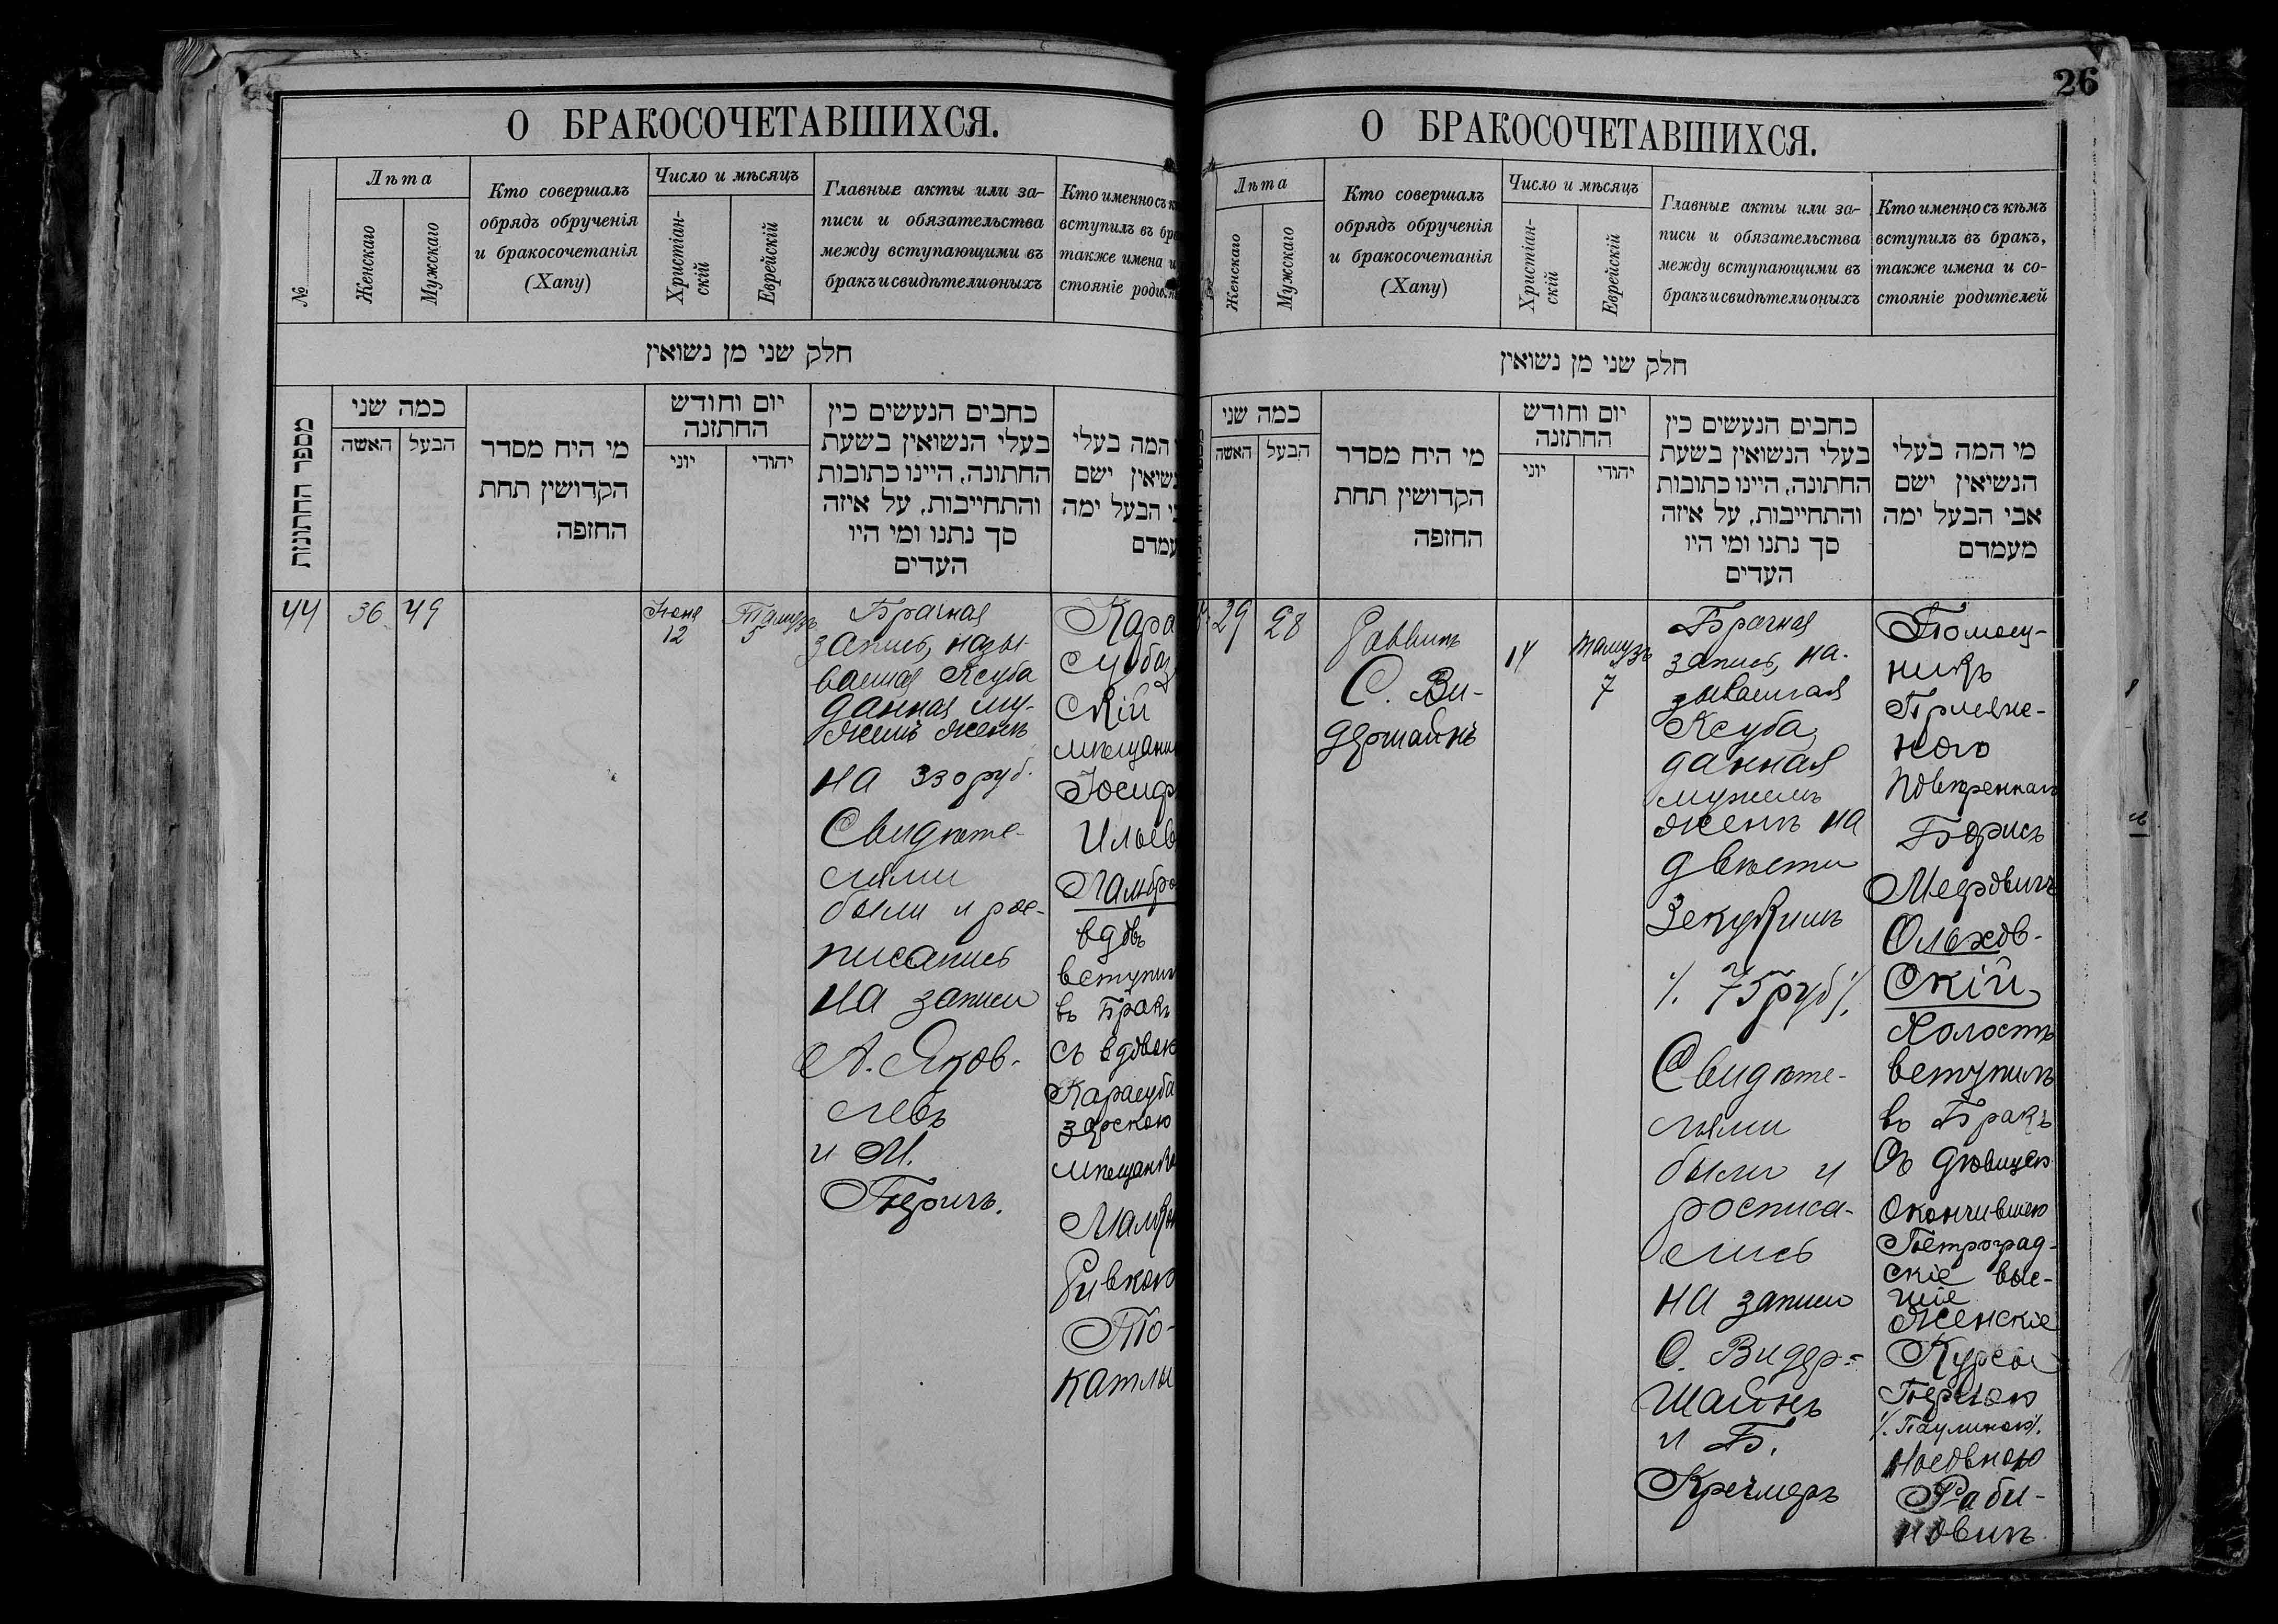 О БРАКОСОЧЕТАВШИХСЯ.
№
Лѣта
Женскаго
Мужскаго
Кто совершалъ
обрядъ обрученія
и бракосочетанія
(Хапу)
Число и мѣсяцъ
Христіан-
скій
Еврейскій
Главные акты или за-
писи и обязательства
между вступающими въ
бракъ и свидѣтели оныхъ
Кто именно съ к
вступилъ въ бра
также имена и
стояніе роди
חלק שני מן נשואין
מספר החתונות
כמה שני
האשה
הבעל
מי היח מסדר
הקדושין תחת
החזפה
יום וחודש
החתזנה
יוני
יהודי
כחבים הנעשים כין
בעלי הנשואין בשעת
החתונה, היינו כתובות
והתחייבות, על איזה
סך נתנו ומי היו
העדים
המה בעלי
נשיאין ישם
הבעל ימה
עמדם
44
36
49
Іюня
12
Тамузъ
5
Брачная
запись, назы-
ваемая Ксуба
данная му-
жемъ женѣ
на 330 руб.
Свидѣте-
лями
были и рос-
писались
на записи
А. Яков-
левъ
и М.
Перичъ.
Кара
субаз
скій
мѣщани
Іосиф
Ильев
Ламбро
вдов
вступил
въ Бракъ
съ вдовою
Карасуба
зарскою
мѣщанко
Малкою
Ривкою
То-
катлы
26
О БРАКОСОЧЕТАВШИХСЯ.
Лѣта
Женскаго
Мужскаго
Кто совершалъ
обрядъ обрученія
и бракосочетанія
(Хапу)
Число и мѣсяцъ
Христіан-
скій
Еврейскій
Главные акты или за-
писи и обязательства
между вступающими въ
бракъ и свидѣтели оныхъ
Кто именно съ кѣмъ
вступилъ въ бракъ,
также имена и со-
стояніе родителей
חלק שני מן נשואין
כמה שני
האשה
הבעל
מי היח מסדר
הקדושין תחת
החזפה
יום וחודש
החתזנה
יוני
יהודי
כחבים הנעשים כין
בעלי הנשואין בשעת
החתונה, היינו כתובות
והתחייבות, על איזה
סך נתנו ומי היו
העדים
מי המה בעלי
הנשיאין ישם
אבי הבעל ימה
מעמדם
29
28
Раввинъ
С. Ви-
дершайнъ
14
Тамузъ
7
Брачная
запись, на-
зываемая
Ксуба,
данная
мужемъ
женѣ на
двѣсти
Зекукимъ
/. 75 руб /.
Свидѣте-
лями
были и
росписа-
лись
на записи
С. Видер-
шайнъ
и Б.
Креймеръ
Помощ-
никъ
Присяж-
наго
повѣреннаго
Борисъ
Меэровичъ
Ольхов-
скій,
Холостъ
вступилъ
въ Бракъ
Съ дѣвицею
Окончившею
Петроград-
скіе выс-
шіе
Женскіе
Курсы
Перлою
/. Паулиною /.
Ноевною
Раби-
новичъ